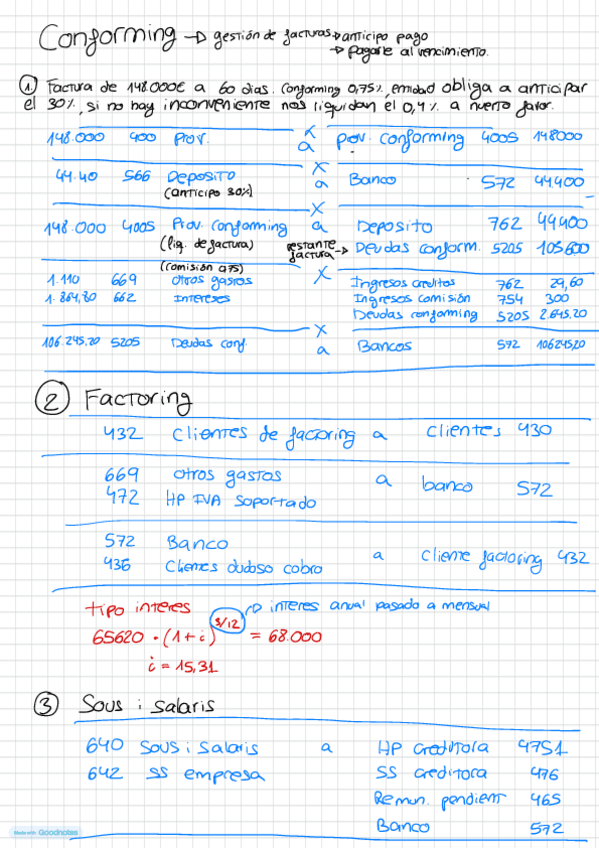 Conforming → gestión de facturas → anticipo pago
→ pagarle al vencimiento.
① Factura de 148.000€ a 60 dias. Conforming 0,75%, entidad obliga a anticipar
el 30%, si no hay inconveniente nos liquidan el 0,4% a nuestro favor.
148.000 400 Prov. x a prov. conforming 4005 148000
44.40 566 Deposito x a Banco 572 44400
(anticipo 30%)
148.000 4005 Prov. conforming x a Deposito 762 44400
(liq. de factura) restante factura → Deudas conform. 5205 105600
(comisión 0,75)
1.110 669 otros gastos x Ingresos creditos 762 29,60
1.864,80 662 Intereses Ingresos comisión 754 300
Deudas conforming 5205 2.645.20
106.245,20 5205 Deudas conf. x a Bancos 572 106245,20
② Factoring
432 Clientes de factoring a Clientes 430
669 otros gastos a banco 572
472 HP IVA soportado
572 Banco a Cliente factoring 432
436 Clientes dudoso cobro
tipo interes → interes anual pasado a mensual
65620 · (1+i)^3/12 = 68.000
i = 15,31
③ Sous i salaris
640 Sous i Salaris a HP creditora 4751
642 SS empresa SS creditora 476
Remun. pendient 465
Banco 572
Made with Goodnotes